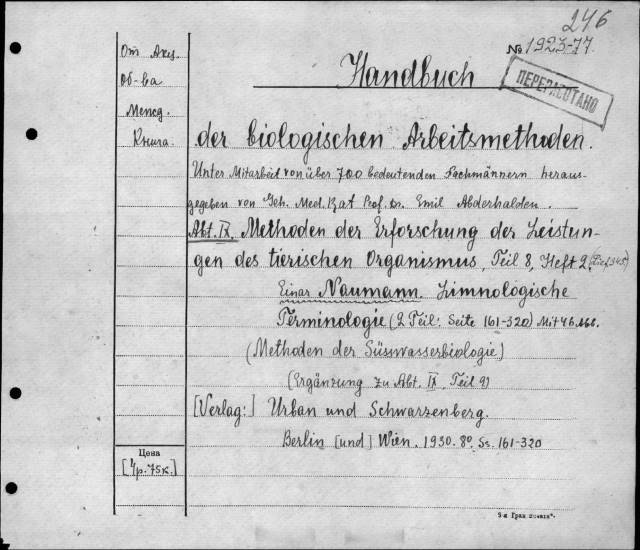 246
№ 1923-77
ПЕРЕРАБОТАНО
От Акц.
Об-ва
Межд.
Книга.
Handbuch
der biologischen Arbeitsmethoden.
Unter Mitarbeit von über 700 bedeutenden Fachmännern heraus-
gegeben von Geh. Med. Rat Prof. Dr. Emil Abderhalden.
Abt. IX. Methoden der Erforschung der Leistun-
gen des tierischen Organismus, Teil 8, Heft 2. (Lief. 345)
Einar Naumann. Limnologische
Terminologie (2 Teil: Seite 161-320) Mit 46 Abb.
(Methoden der Süsswasserbiologie)
(Ergänzung zu Abt. IX, Teil 2)
[Verlag:] Urban und Schwarzenberg.
Berlin [und] Wien. 1930. 8º. Ss. 161-320
Цена
[4р.-75к.]